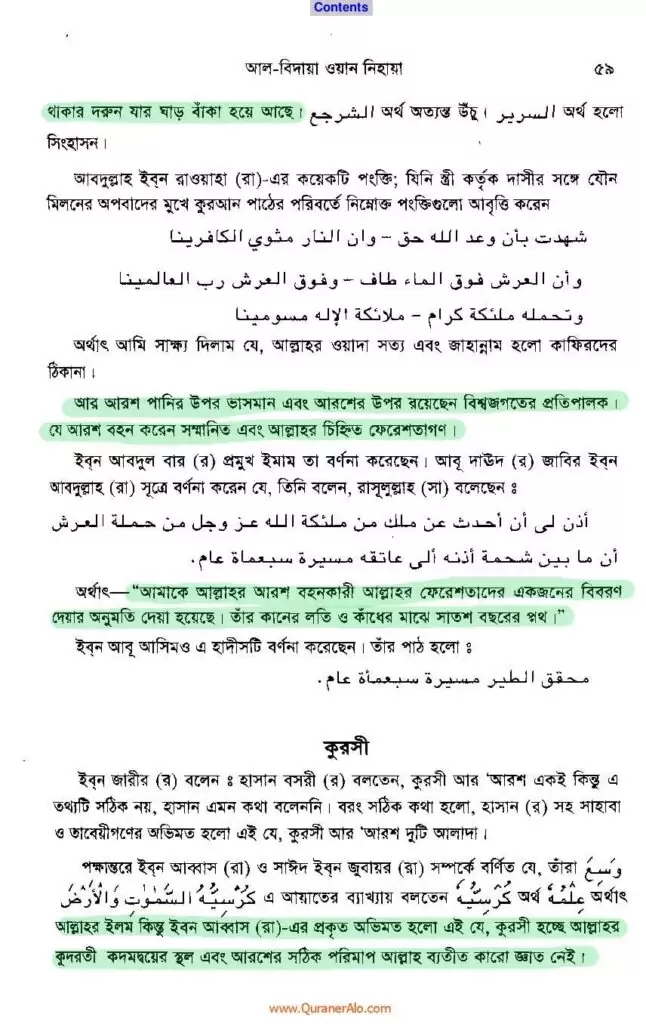 Contents
আল-বিদায়া ওয়ান নিহায়া ৫৯
থাকার দরুন যার ঘাড় বাঁকা হয়ে আছে। الشرجع অর্থ অত্যন্ত উঁচু। السرير অর্থ হলো
সিংহাসন।
আবদুল্লাহ ইব্‌ন রাওয়াহা (রা)-এর কয়েকটি পংক্তি; যিনি স্ত্রী কর্তৃক দাসীর সঙ্গে যৌন
মিলনের অপবাদের মুখে কুরআন পাঠের পরিবর্তে নিম্নোক্ত পংক্তিগুলো আবৃত্তি করেন
شهدت بأن وعد الله حق – وان النار مثوي الكافرينا
وأن العرش فوق الماء طاف – وفوق العرش رب العالمينا
وتحمله ملئكة كرام – ملائكة الإله مسومينا
অর্থাৎ আমি সাক্ষ্য দিলাম যে, আল্লাহর ওয়াদা সত্য এবং জাহান্নাম হলো কাফিরদের
ঠিকানা।
আর আরশ পানির উপর ভাসমান এবং আরশের উপর রয়েছেন বিশ্বজগতের প্রতিপালক।
যে আরশ বহন করেন সম্মানিত এবং আল্লাহর চিহ্নিত ফেরেশতাগণ।
ইব্‌ন আবদুল বার (র) প্রমুখ ইমাম তা বর্ণনা করেছেন। আবূ দাউদ (র) জাবির ইব্‌ন
আবদুল্লাহ (রা) সূত্রে বর্ণনা করেন যে, তিনি বলেন, রাসূলুল্লাহ (সা) বলেছেন ঃ
أذن لى أن أحدث عن ملك من ملئكة الله عز وجل من حملة العرش
أن ما بين شحمة أذنه ألى عاتقه مسيرة سبعماة عام.
অর্থাৎ—“আমাকে আল্লাহর আরশ বহনকারী আল্লাহর ফেরেশতাদের একজনের বিবরণ
দেয়ার অনুমতি দেয়া হয়েছে। তাঁর কানের লতি ও কাঁধের মাঝে সাতশ বছরের পথ।”
ইব্‌ন আবূ আসিমও এ হাদীসটি বর্ণনা করেছেন। তাঁর পাঠ হলো ঃ
محقق الطير مسيرة سبعمأة عام.
কুরসী
ইব্‌ন জারীর (র) বলেন ঃ হাসান বসরী (র) বলতেন, কুরসী আর ‘আরশ একই কিন্তু এ
তথ্যটি সঠিক নয়, হাসান এমন কথা বলেননি। বরং সঠিক কথা হলো, হাসান (র) সহ সাহাবা
ও তাবেয়ীগণের অভিমত হলো এই যে, কুরসী আর ‘আরশ দুটি আলাদা।
পক্ষান্তরে ইব্‌ন আব্বাস (রা) ও সাঈদ ইব্‌ন জুবায়র (রা) সম্পর্কে বর্ণিত যে, তাঁরা وَسِعَ
كُرْسِيُّهُ السَّمٰوٰتِ وَالْأَرْضَ এ আয়াতের ব্যাখ্যায় বলতেন كُرْسِيُّهُ অর্থ عِلْمُهُ অর্থাৎ
আল্লাহর ইলম কিন্তু ইবন আব্বাস (রা)-এর প্রকৃত অভিমত হলো এই যে, কুরসী হচ্ছে আল্লাহর
কুদরতী কদমদ্বয়ের স্থল এবং আরশের সঠিক পরিমাপ আল্লাহ ব্যতীত কারো জ্ঞাত নেই।
www.QuranerAlo.com